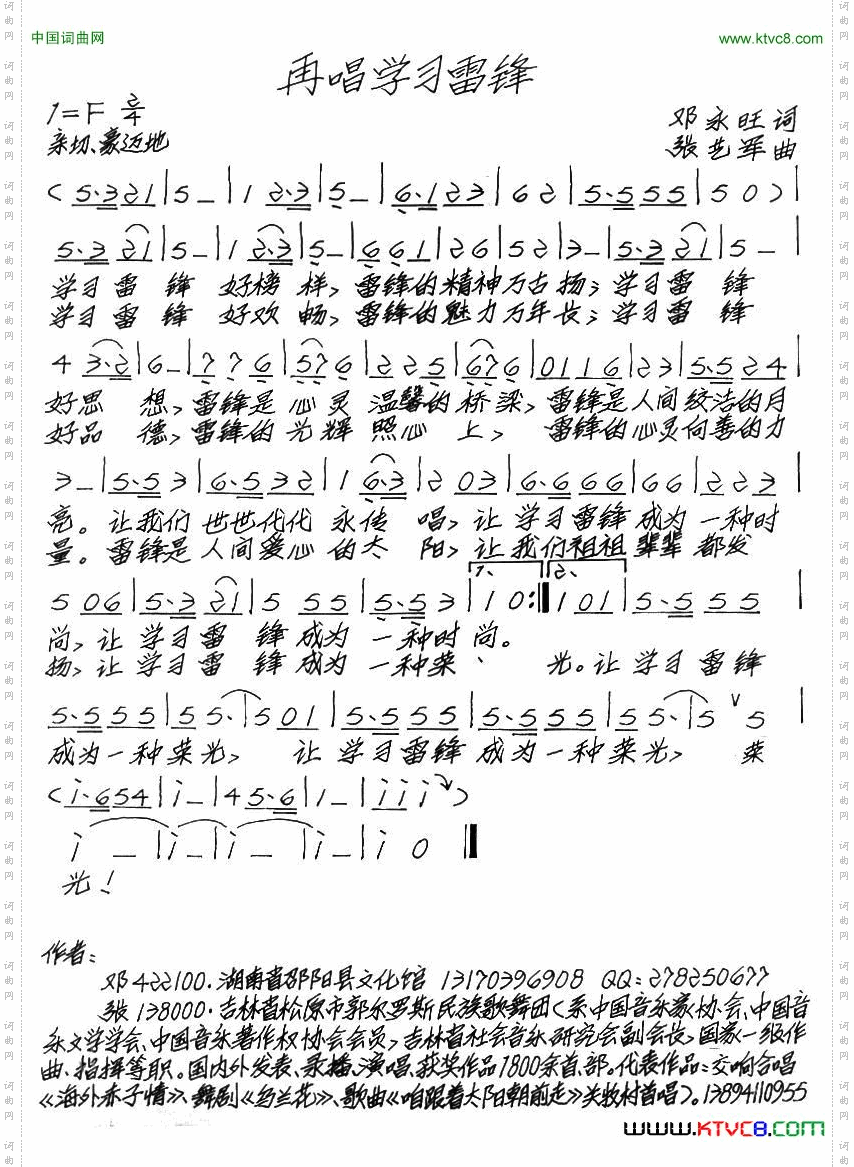 中国词曲网 www.ktvc8.com
再唱学习雷锋
1=F 2/4
邓永旺词
亲切、豪迈地
张艺军曲
(5·3 21|5 —|1 2·3|5 —|6·1 23|6 2|5·5 55|5 0)|
5·3 21|5 —|1 2·3|5 —|6 6 1|2 6|5 2|3 —|5·3 21|5 —|
学习雷 锋 好榜 样,雷锋的精神万古扬;学习雷 锋
学习雷 锋 好欢 畅,雷锋的魅力万年长;学习雷 锋
4 3·2|6 —|7 7 6|5 7 6|2 2 5|6 7 6|0 1 1 6|2 3|5·5 2 4|
好思 想,雷锋是 心灵 温馨的 桥 梁,雷锋是人间皎洁的月
好品 德,雷锋的 光辉 照心 上, 雷锋的心灵向善的力
3 —|5·5 3|6·5 32|1 6·3|2 03|6·6 66|66|2 2 3|
亮。让我们 世世代代 永传 唱,让 学习雷锋 成为 一种时
量。雷锋是 人间爱心 的太 阳,让 我们祖祖 辈辈 都发
5 06|5·3 21|5 55|5·5 3|1. 1 0:‖2. 1 01|5·5 55|
尚,让 学习雷 锋 成为 一种时 尚。
扬,让 学习雷 锋 成为 一种荣、 光。让 学习雷锋
5·5 55|55·|5 01|5·5 55|5·5 55|55·|5 ∨ 5|
成为一种荣光, 让 学习雷锋 成为一种荣光, 荣
(i·654|i —|4 5·6|1 —|i i i)
i —|i —|i —|i —|i 0‖
光!
作者:
邓422100.湖南省邵阳县文化馆 13170396908 QQ:278250677
张138000·吉林省松原市郭尔罗斯民族歌舞团(系中国音乐家协会、中国音
乐文学学会、中国音乐著作权协会会员,吉林省社会音乐研究会副会长,国家一级作
曲、指挥等职。国内外发表、录播、演唱、获奖作品1800余首、部。代表作品:交响合唱
《海外赤子情》、舞剧《乌兰花》、歌曲《咱跟着太阳朝前走》关牧村首唱)。13894110955
www.KTVC8.com
词曲网